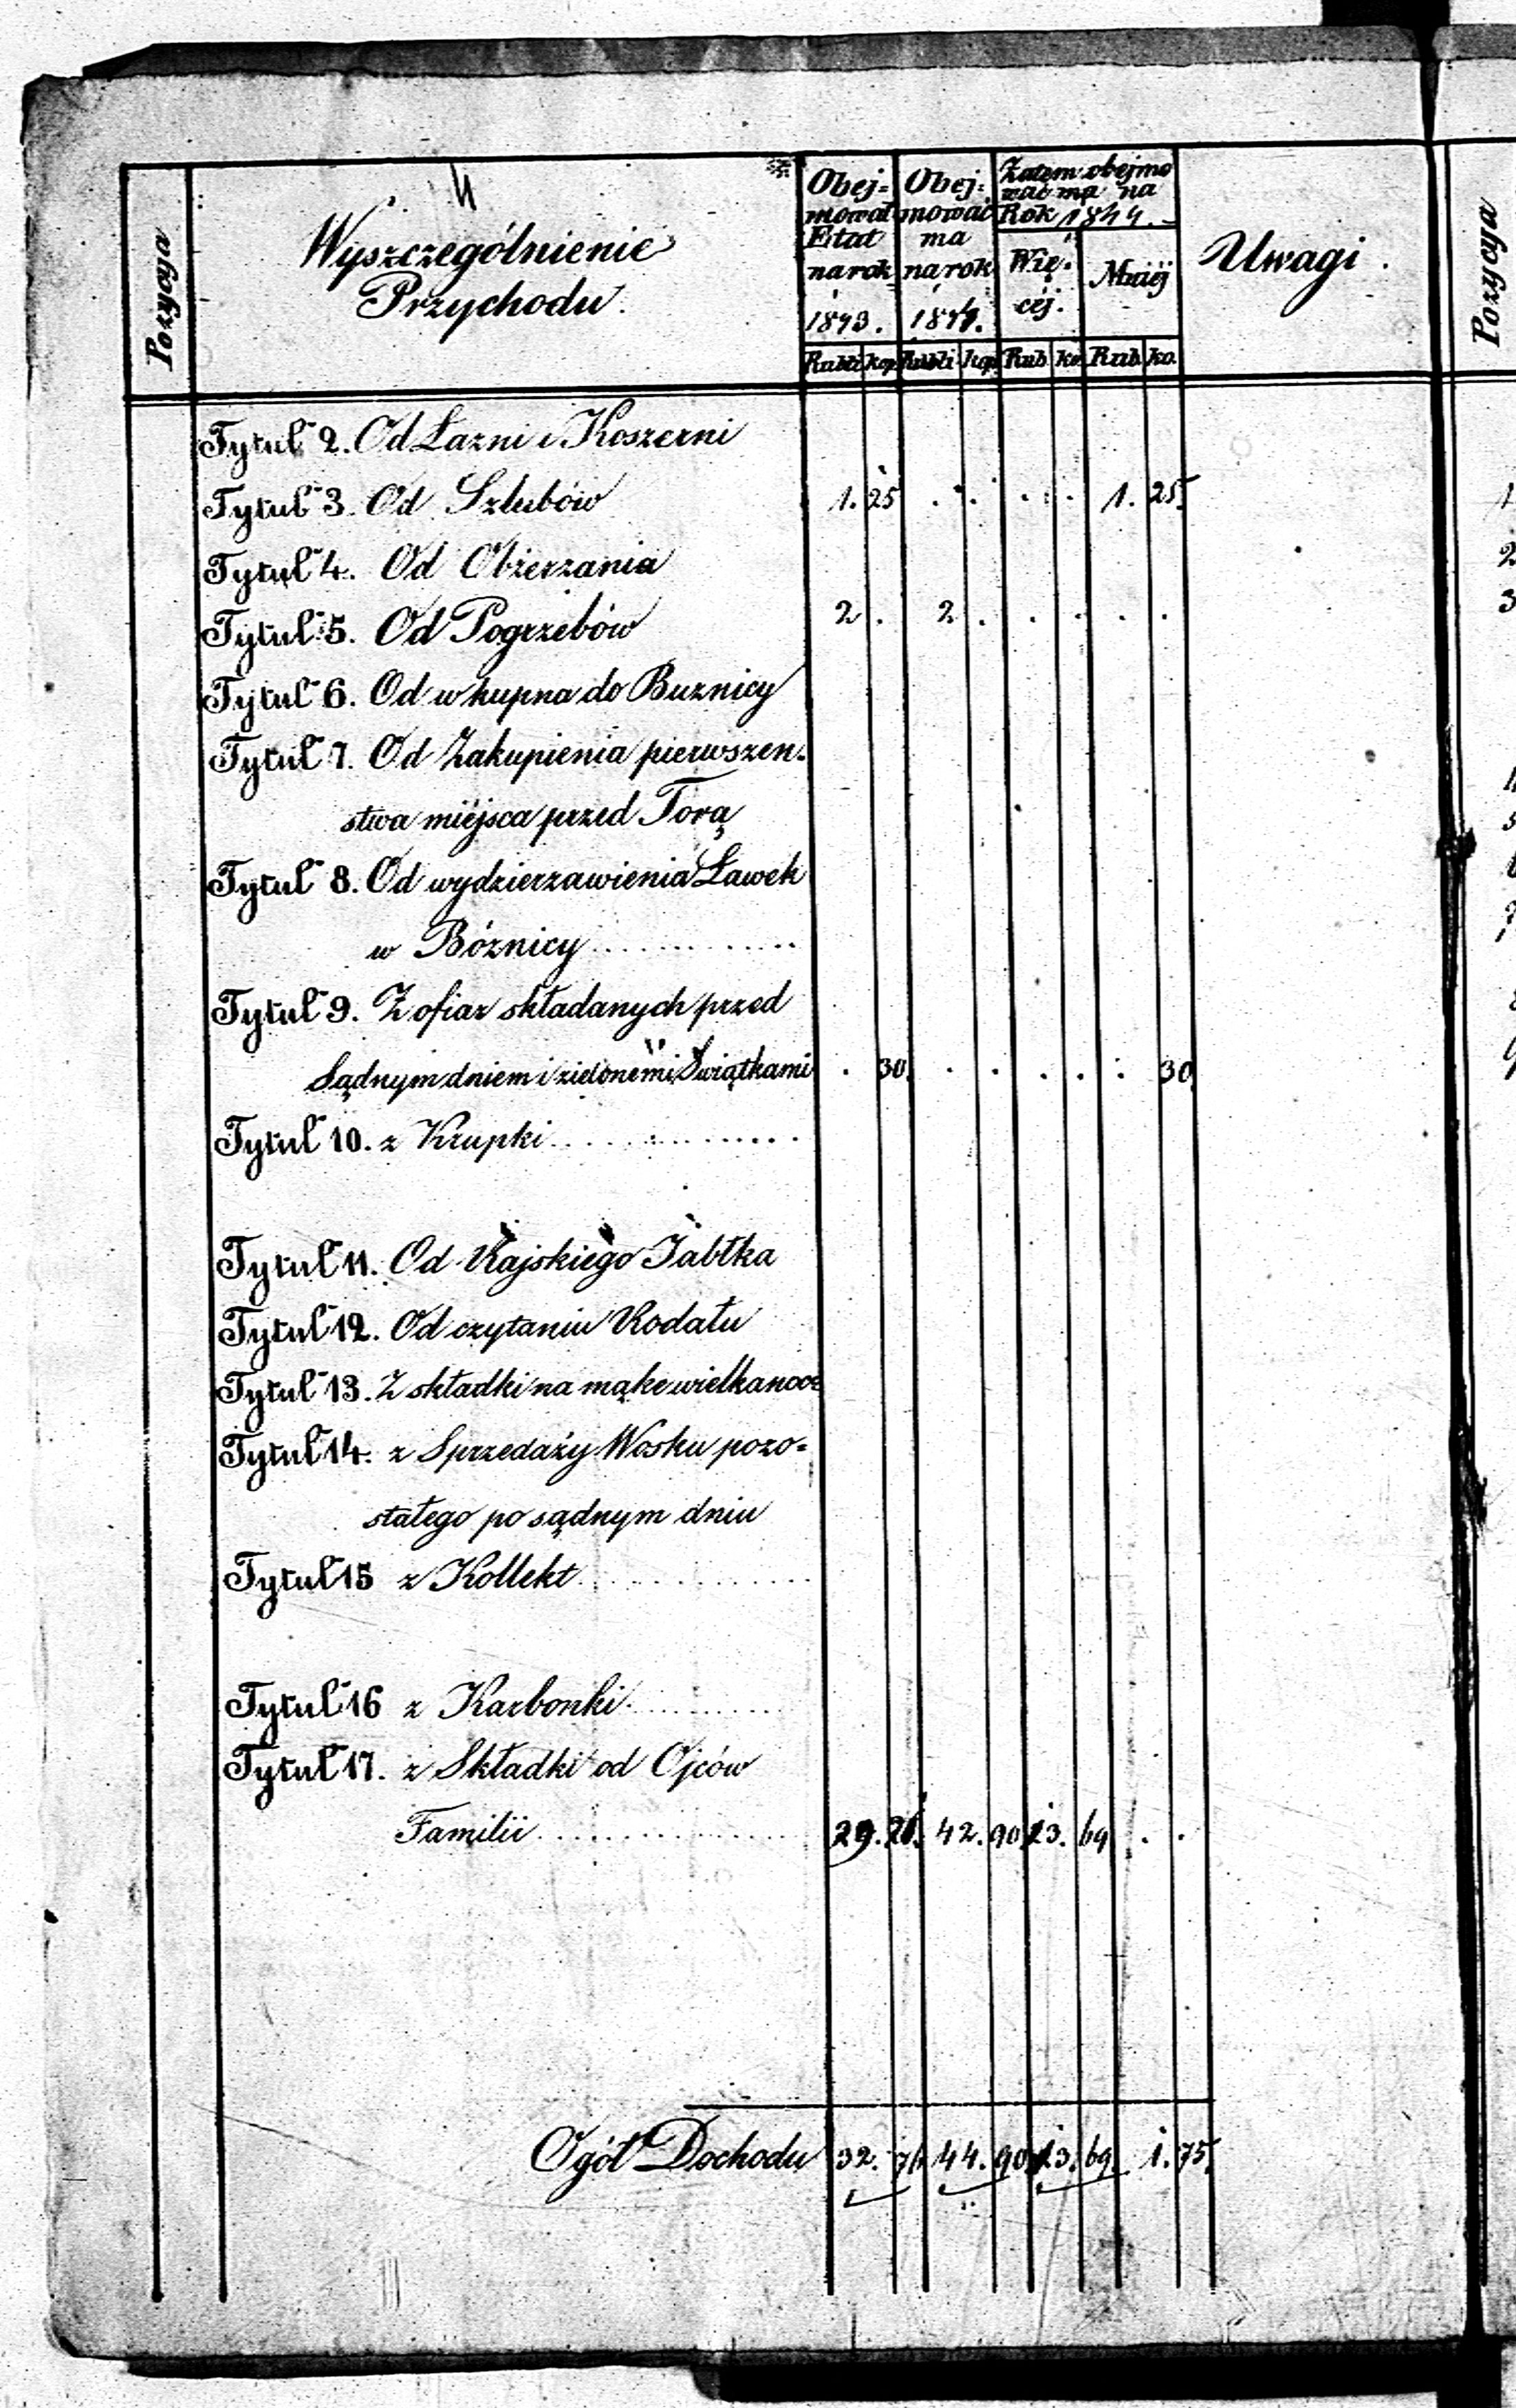 Pozycya
Wyszczególnienie
Przychodu.
Obej=
mował
Etat
na rok
1843.
Obej=
mować
ma
na rok
1844.
Zatem obejmo
wać ma na
Rok 1844.
Wię-
cej.
Mniej
Uwagi.
Pozycya
Rubli kop Rubli kop Rub ko Rub ko.
Tytuł 2. Od Łazni i Koszerni
Tytuł 3. Od Szlubów 1. 25 . . . . 1. 25.
Tytuł 4. Od Obżerzania
Tytuł 5. Od Pogrzebów 2 . 2 . . . . .
Tytuł 6. Od wkupna do Buznicy
Tytuł 7. Od Zakupienia pierwszen-
stwa miejsca przed Torą
Tytuł 8. Od wydzierzawienia Ławek
w Bóznicy
Tytuł 9. Z ofiar składanych przed
Sądnym dniem i zielonemi Swiątkami . 30. . . . . . 30.
Tytuł 10. z Krupki
Tytuł 11. Od Rajskiego Jabłka
Tytuł 12. Od czytaniu Rodału
Tytuł 13. Z składki na mąke wielkanoc
Tytuł 14. z Sprzedaży Wosku pozo=
stałego po sądnym dniu
Tytuł 15 z Kollekt
Tytuł 16 z Karbonki
Tytuł 17. z Składki od Ojców
Familii 29. 42. 90 13. 69 . .
Ogół Dochodu 32. 76 44. 90 13. 69. 1. 75.